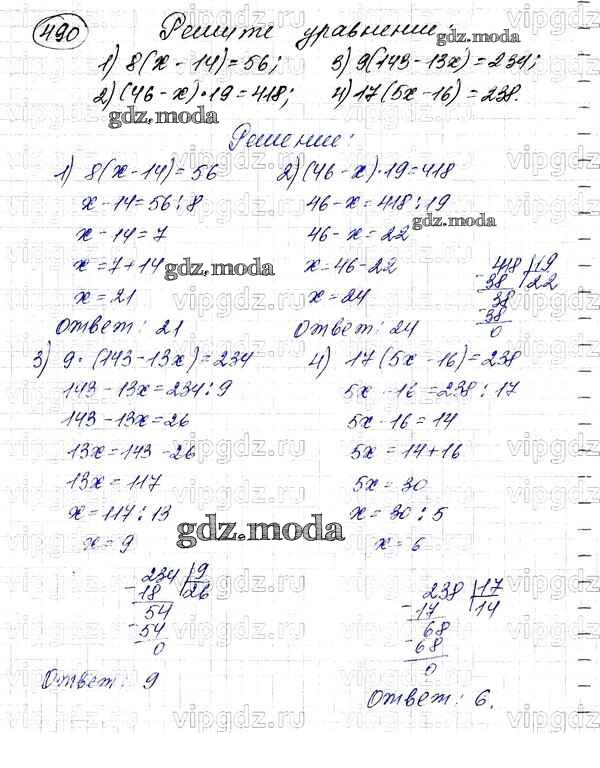 490 Решите уравнение:
1) 8(x - 14) = 56; 3) 9(143 - 13x) = 234;
2) (46 - x) · 19 = 418; 4) 17(5x - 16) = 238.
Решение:
1) 8(x - 14) = 56
x - 14 = 56 : 8
x - 14 = 7
x = 7 + 14
x = 21
Ответ: 21
2) (46 - x) · 19 = 418
46 - x = 418 : 19
46 - x = 22
x = 46 - 22
x = 24
Ответ: 24
418 | 19
- 38 | 22
38
- 38
0
3) 9 · (143 - 13x) = 234
143 - 13x = 234 : 9
143 - 13x = 26
13x = 143 - 26
13x = 117
x = 117 : 13
x = 9
234 | 9
- 18 | 26
54
- 54
0
Ответ: 9
4) 17(5x - 16) = 238
5x - 16 = 238 : 17
5x - 16 = 14
5x = 14 + 16
5x = 30
x = 30 : 5
x = 6
238 | 17
- 17 | 14
68
- 68
0
Ответ: 6.
gdz.moda
gdz.moda
gdz.moda
gdz.moda
gdz.moda
vipgdz.ru